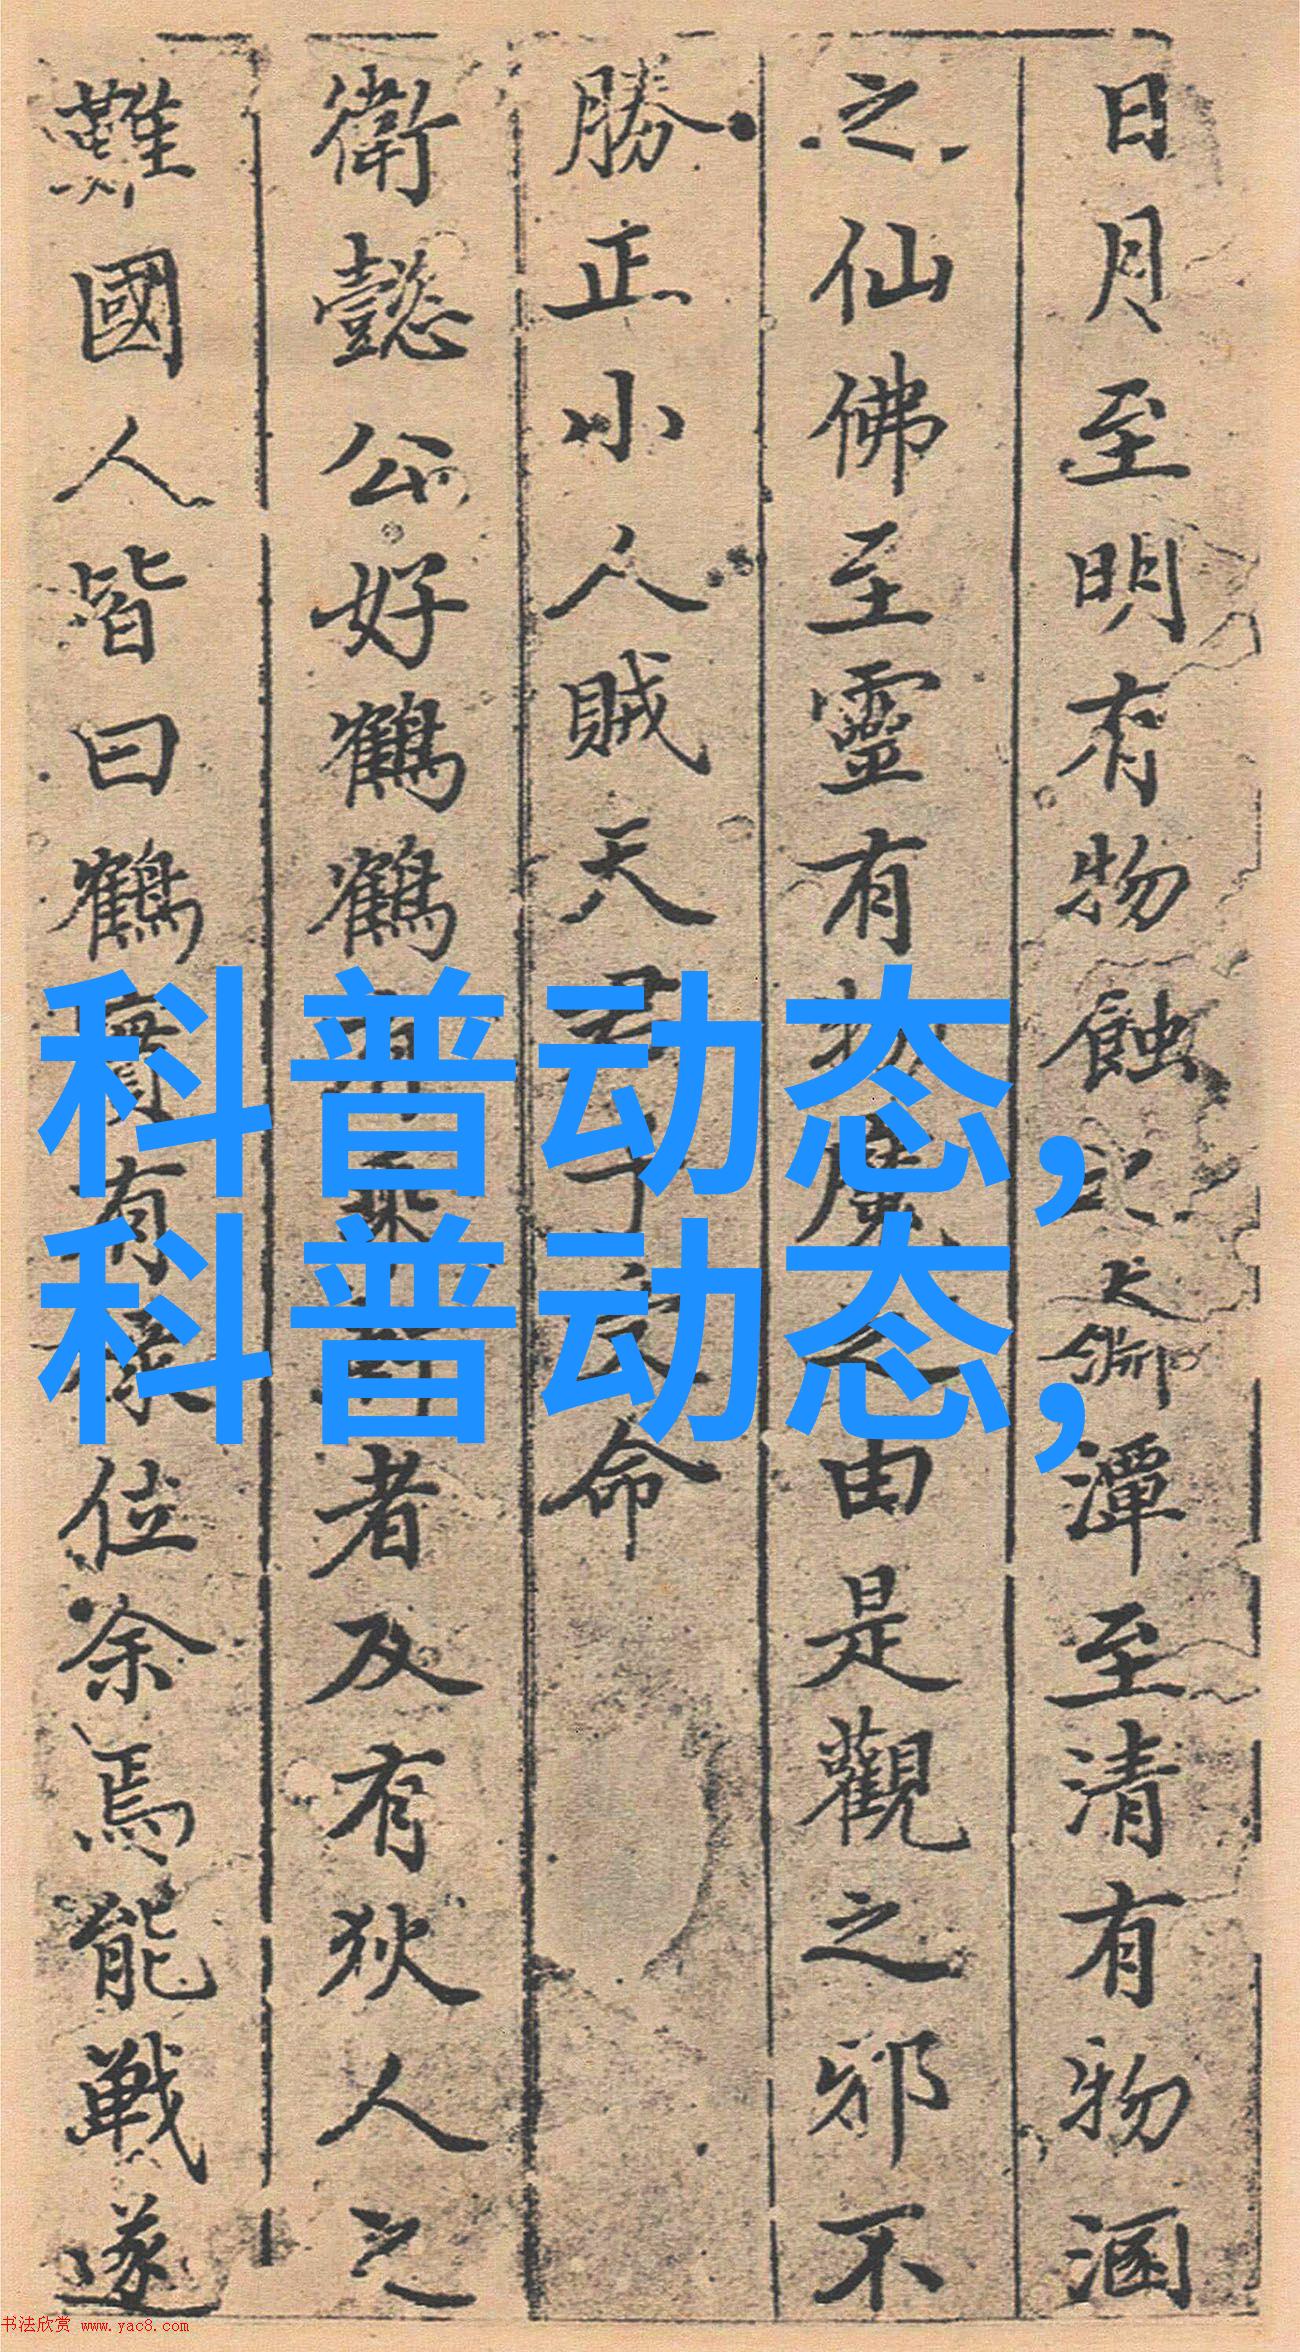 日月至明有物蝕之大師潭至清有物溷
之仙佛至靈有物魔之由是觀之邪不
勝正小人賊天君子反命
衛懿公好鶴鶴有乘軒者及有狄人之
難國人皆曰鶴實有祿位余焉能戰遂
科普动态,
科普动态,
书法欣赏 www.yac8.com